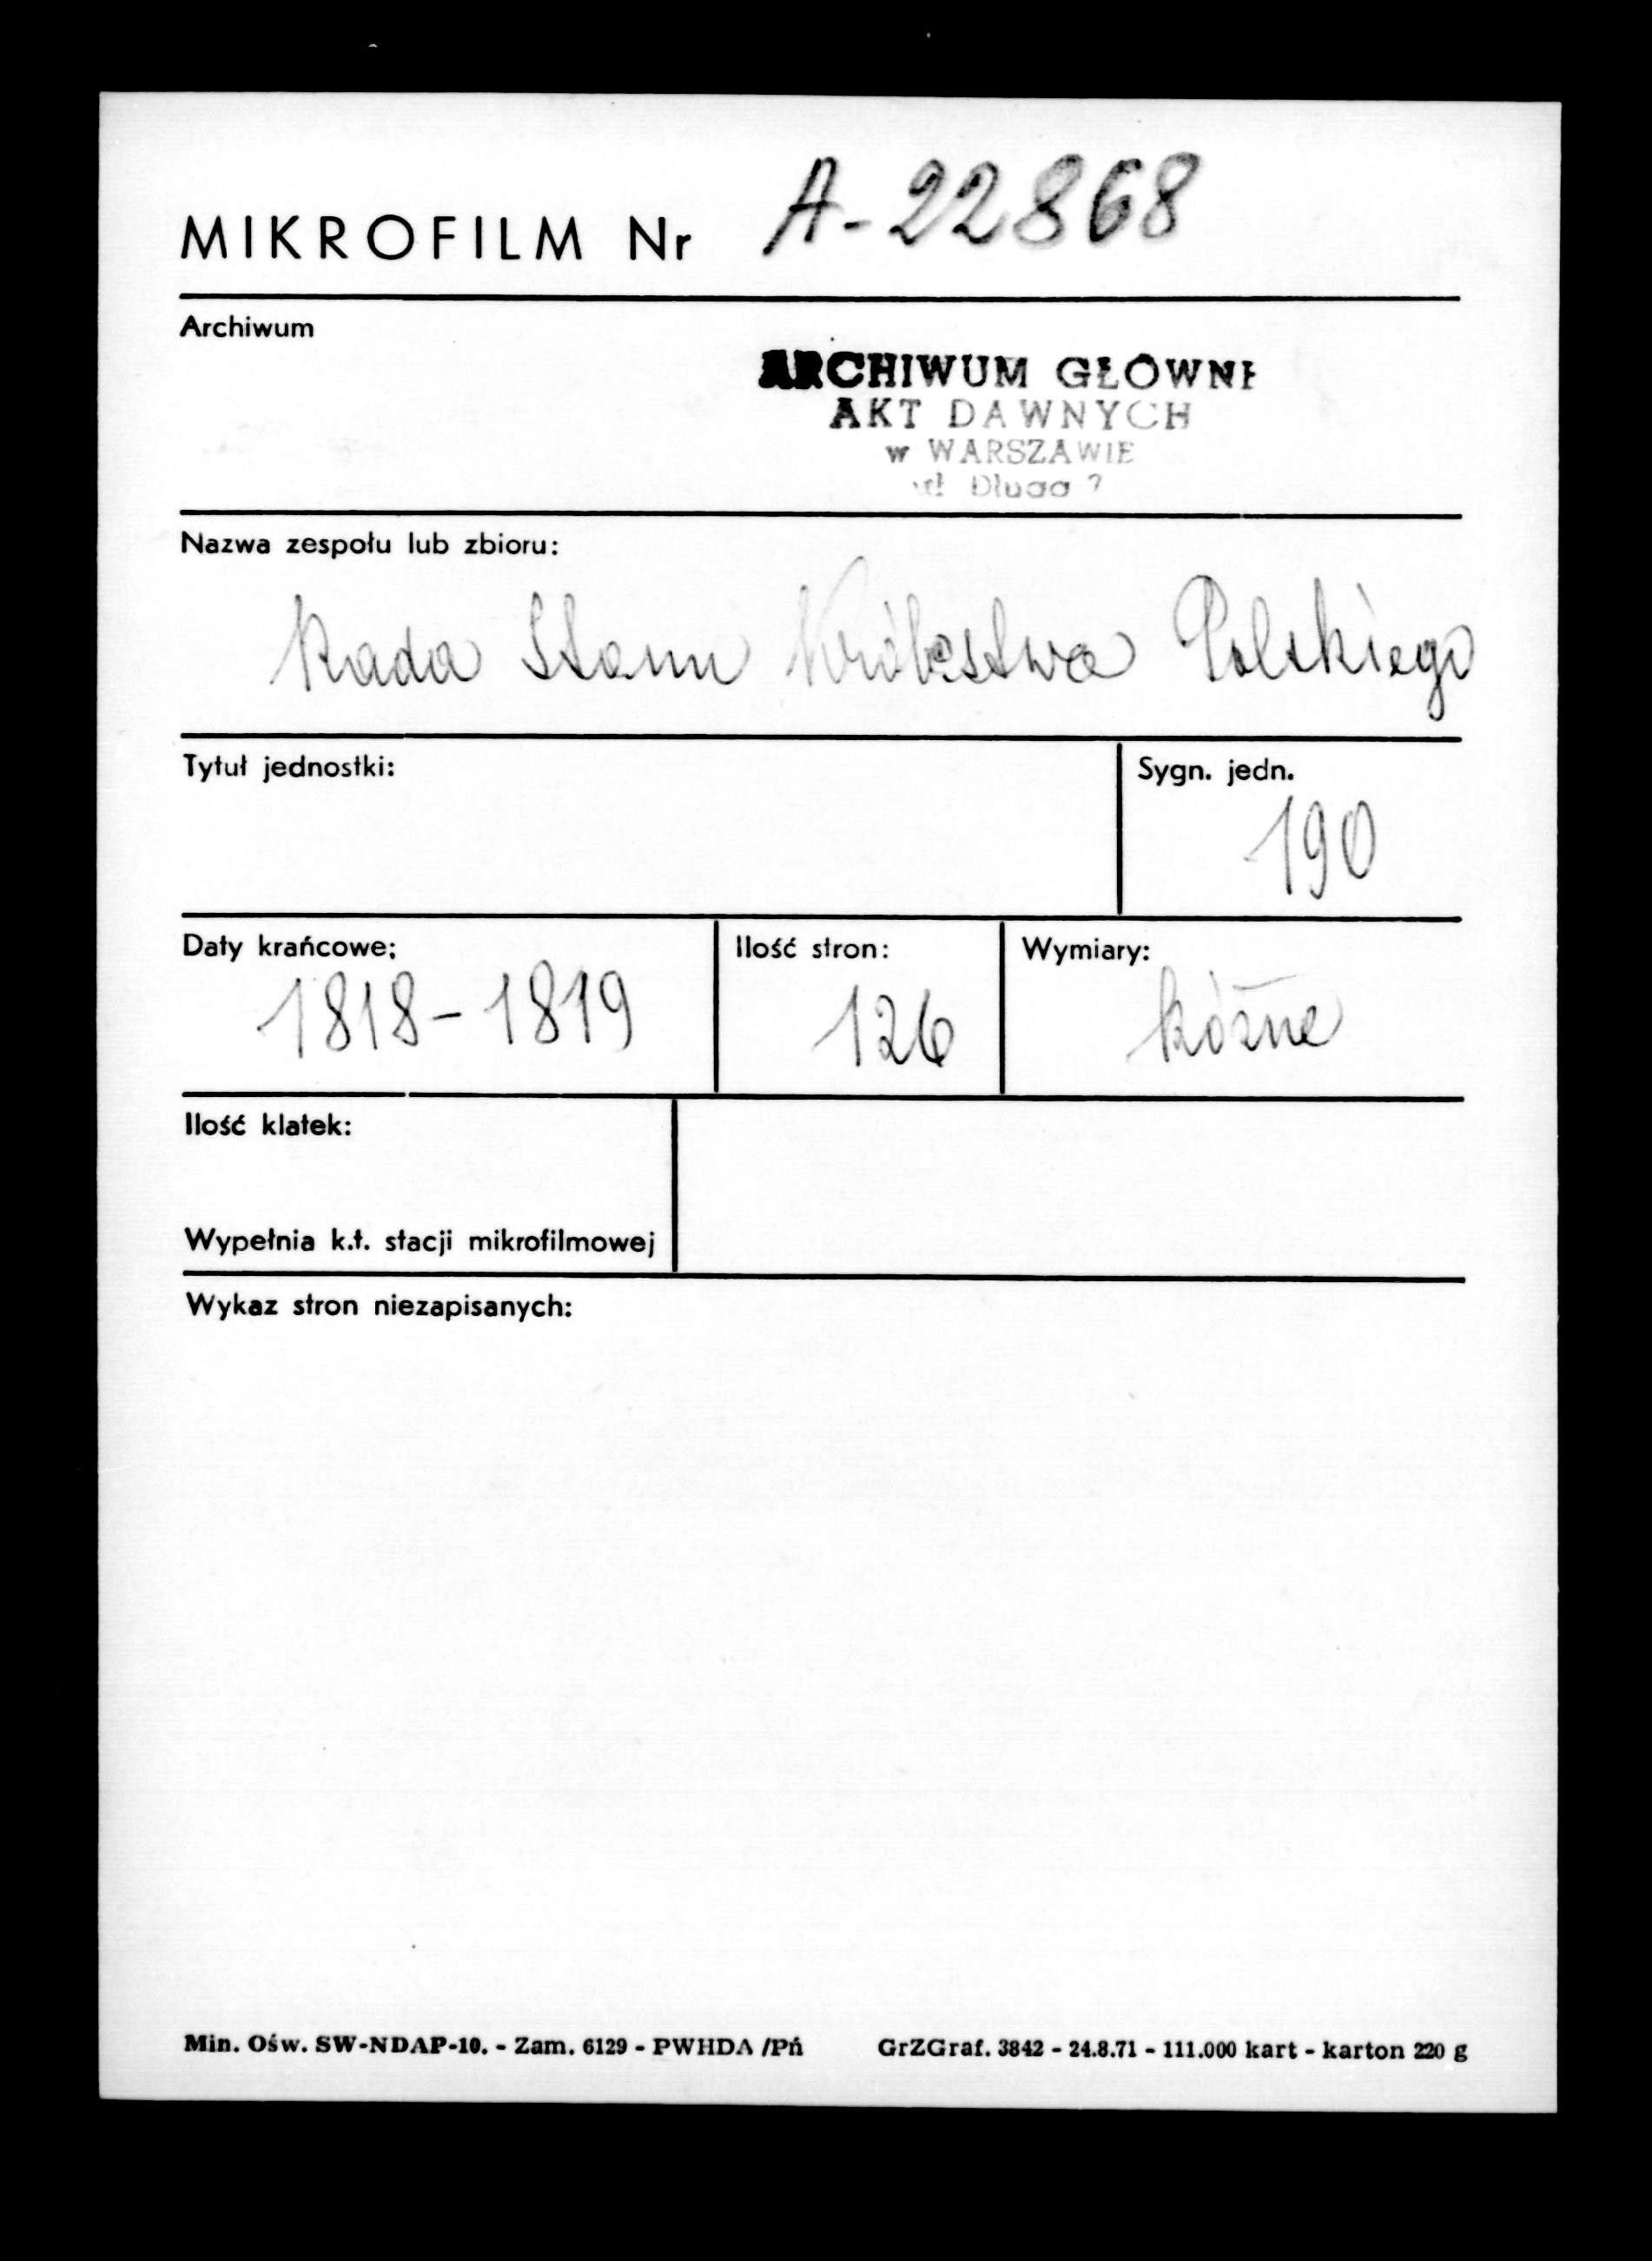 MIKROFILM Nr A-22868
Archiwum
ARCHIWUM GŁÓWNE
AKT DAWNYCH
w WARSZAWIE
ul. Długa 7
Nazwa zespołu lub zbioru:
Rada Stanu Królestwa Polskiego
Tytuł jednostki:
Sygn. jedn.
190
Daty krańcowe:
1818-1819
Ilość stron:
126
Wymiary:
różne
Ilość klatek:
Wypełnia k.t. stacji mikrofilmowej
Wykaz stron niezapisanych:
Min. Ośw. SW-NDAP-10. - Zam. 6129 - PWHDA /Pń GrZGraf. 3842 - 24.8.71 - 111.000 kart - karton 220 g